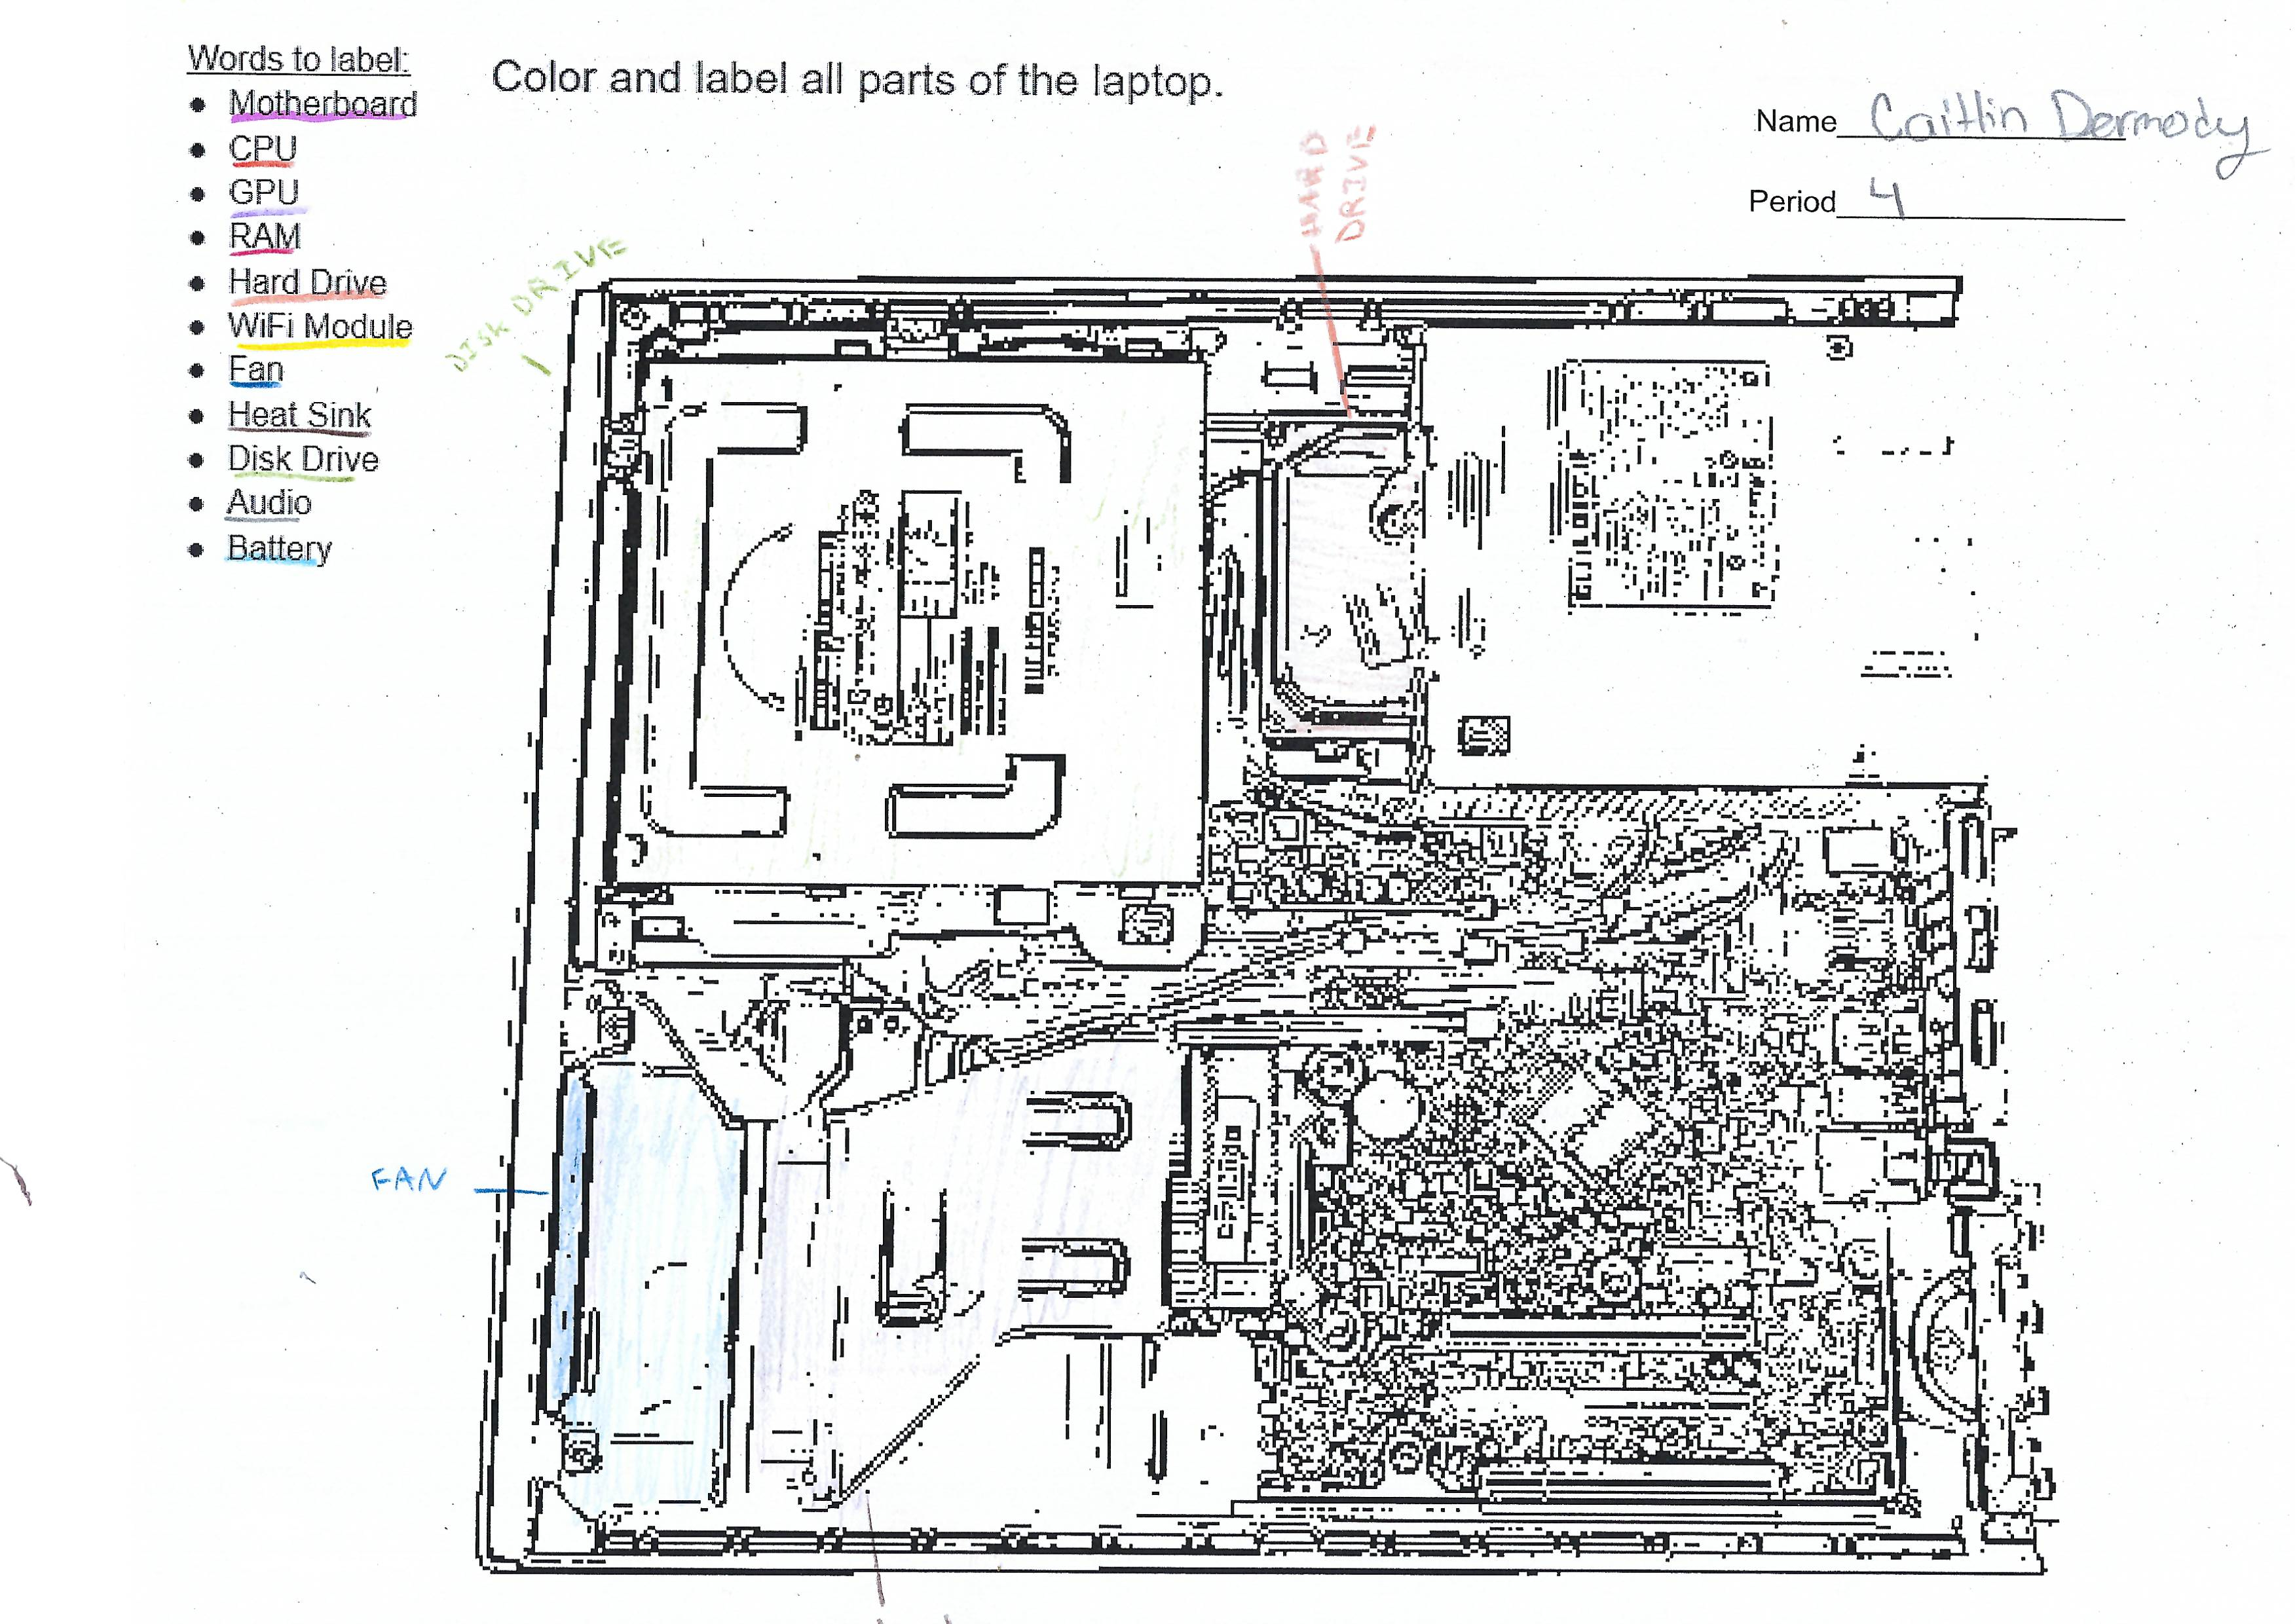 Words to label:
Motherboard
CPU
GPU
RAM
Hard Drive
WiFi Module
Fan
Heat Sink
Disk Drive
Audio
Battery
Color and label all parts of the laptop.
Name Caitlin Dermody
Period 4
HARD
DRIVE
DISK DRIVE
FAN